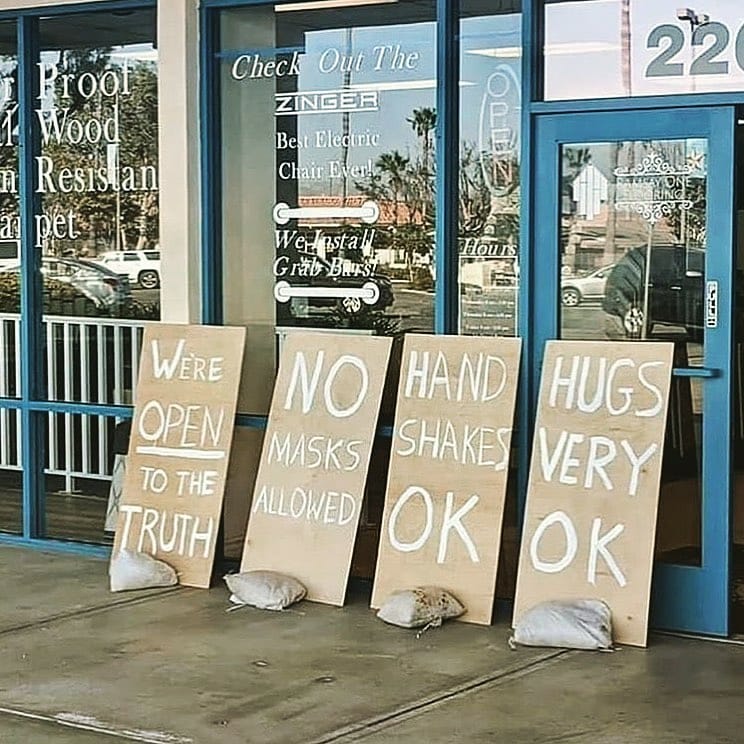 Proof
Wood
Resistan
pet
Check Out The
ZINGER
Best Electric
Chair Ever!
We Install
Grab Bars!
OPEN
Hours
220
WE'RE
OPEN
TO THE
TRUTH
NO
MASKS
ALLOWED
HAND
SHAKES
OK
HUGS
VERY
OK